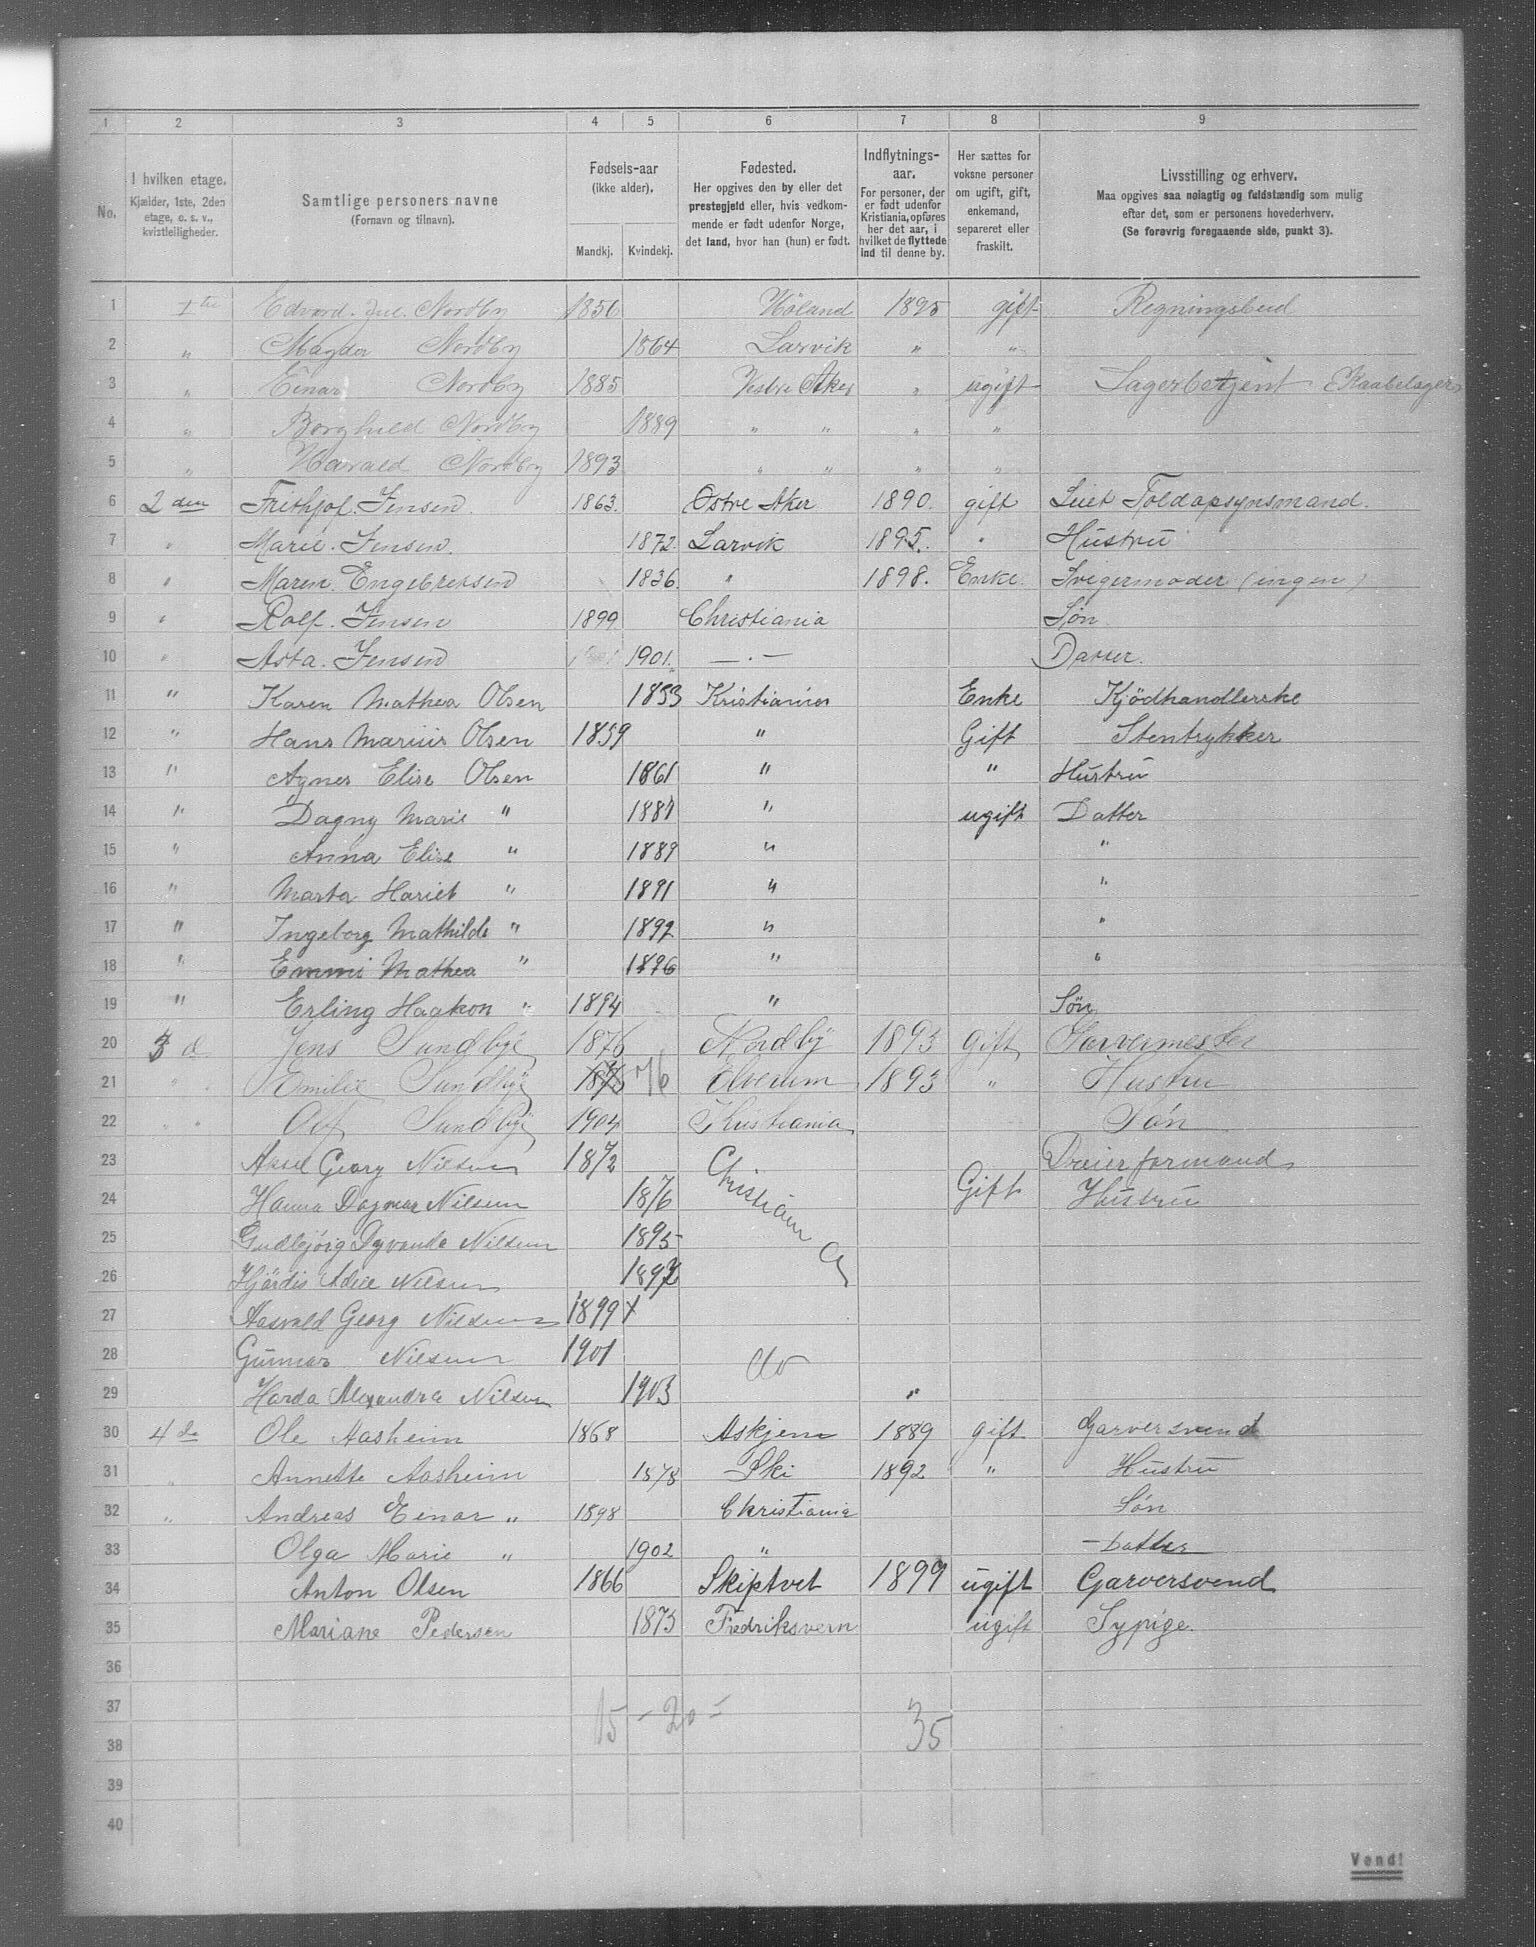 1 2 3 4 5 6 7 8 9
No.
I hvilken etage. Kjælder, 1ste, 2den etage, o. s. v., kvistleiligheder.
Samtlige personers navne (Fornavn og tilnavn).
Fødsels-aar (ikke alder). Mandkj. Kvindekj.
Fødested. Her opgives den by eller det prestegjeld eller, hvis vedkommende er født udenfor Norge, det land, hvor han (hun) er født.
Indflytnings-aar. For personer, der er født udenfor Kristiania, opføres her det aar, i hvilket de flyttede ind til denne by.
Her sættes for voksne personer om ugift, gift, enkemand, separeret eller fraskilt.
Livsstilling og erhverv. Maa opgives saa nøiagtig og fuldstændig som mulig efter det, som er personens hovederhverv. (Se forøvrig foregaaende side, punkt 3).
1 1ste Edvard. Jul. Nordby 1856 Høland 1895 gift Regningsbud
2 " Nordby 1864 Larvik " "
3 " Einar Nordby 1885 Vestre Aker " ugift Lagerbetjent
4 " Borghild Nordby 1889 " " " "
5 " Harald Nordby 1893 " " " "
6 2den Frithjof. Jensen 1863. Østre Aker 1890. gift Leiet Toldopsynsmand.
7 " Marie. Jensen. 1872. Larvik 1895. " Hustru
8 " Maren. Engebretsen 1836. " 1898. Enke. Svigermoder (ingen)
9 " Rolf. Jensen 1899 Christiania Søn
10 " Asta. Jensen 1901. — . — Datter.
11 " Karen Mathea Olsen 1853 Kristiania Enke Kjödhandlerske
12 " Hans Marius Olsen 1859 " Gift Stentrykker
13 " Agnes Elise Olsen 1861 " " Hustru
14 " Dagny Marie " 1887 " ugift Datter
15 " Anna Elise " 1889 " "
16 " Marta Hariet " 1891 " "
17 " Ingeborg Mathilde " 1892 " "
18 " Emmi Mathea " 1896 " "
19 " Erling Haakon " 1894 " Søn
20 3 d. Jens Sundbye 1876 Nordby 1893 gift Garvermester
21 " " Emilie Sundbye 1876 76 Elverum 1893 " Hustru
22 " " Sundbye 1904 Kristiania Søn
23 Georg Nilsen 1872 Christiania Dreierformand
24 Hanna Dagmar Nilsen 1876 Gift Hustru
25 Nilsen 1895
26 Hjördis Nilsen 1897
27 Georg Nilsen 1899
28 Gunnar Nilsen 1901 do
29 Alexandra Nilsen 1903 "
30 4de Ole Aasheim 1868 Askjem 1889 gift Garversvend
31 " Annette Aasheim 1878 Ski 1892 " Hustru
32 " Andreas Einar " 1898 Christiania Søn
33 Olga Marie " 1902 " Datter
34 Anton Olsen 1866 Skiptvet 1899 ugift Garversvend
35 Mariane Pedersen 1875 Fredriksvern ugift Sypige.
36
37 15 – 20 = 35
38
39
40
Vend!